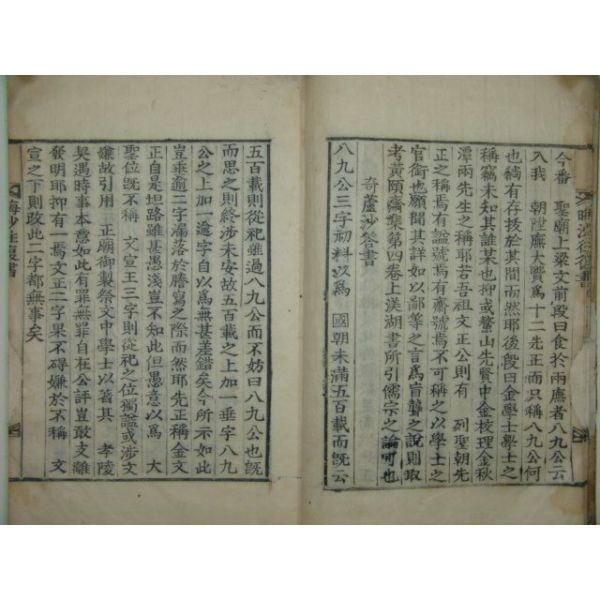 今番 聖廟上梁文前段曰食於兩廡者八九公云
入我 朝陞廡大賢爲十二先正而只稱八九公何
也猶有存拔於其間而然耶後段曰金學士學士之
稱竊未知其誰某也抑或鰲山先賢中金校理金秋
潭兩先生之稱耶若吾祖文正公則有 列聖朝先
正之稱焉有謚號焉有齋號焉不可稱之以學士之
官銜也願聞其詳如以鄙等之言爲盲聾之說則取
考黃頤齋集第四卷上渼湖書所引儒宗之論可也
奇蘆沙答書
八九公三字初料以爲 國朝未滿五百載而旣云
五百載則從祀雖過八九公而不妨曰八九公也旣
而思之則終涉未安故五百載之上加一垂字八九
公之上加一逾字自以爲無甚差錯矣今所示如此
豈垂逾二字漏落於謄寫之際而然耶先正稱金文
正自是坦路雖甚愚淺豈不知此但愚意以爲 大
聖位旣不稱 文宣王三字則從祀之位獨謚或涉文
嫌故引用 正廟御製祭文中學士以著其 孝陵
契遇時事本意如此有罪無罪自在公評豈敢支離
發明耶抑有一焉文正二字果不碍嫌於不稱 文
宣之下則改此二字都無事矣